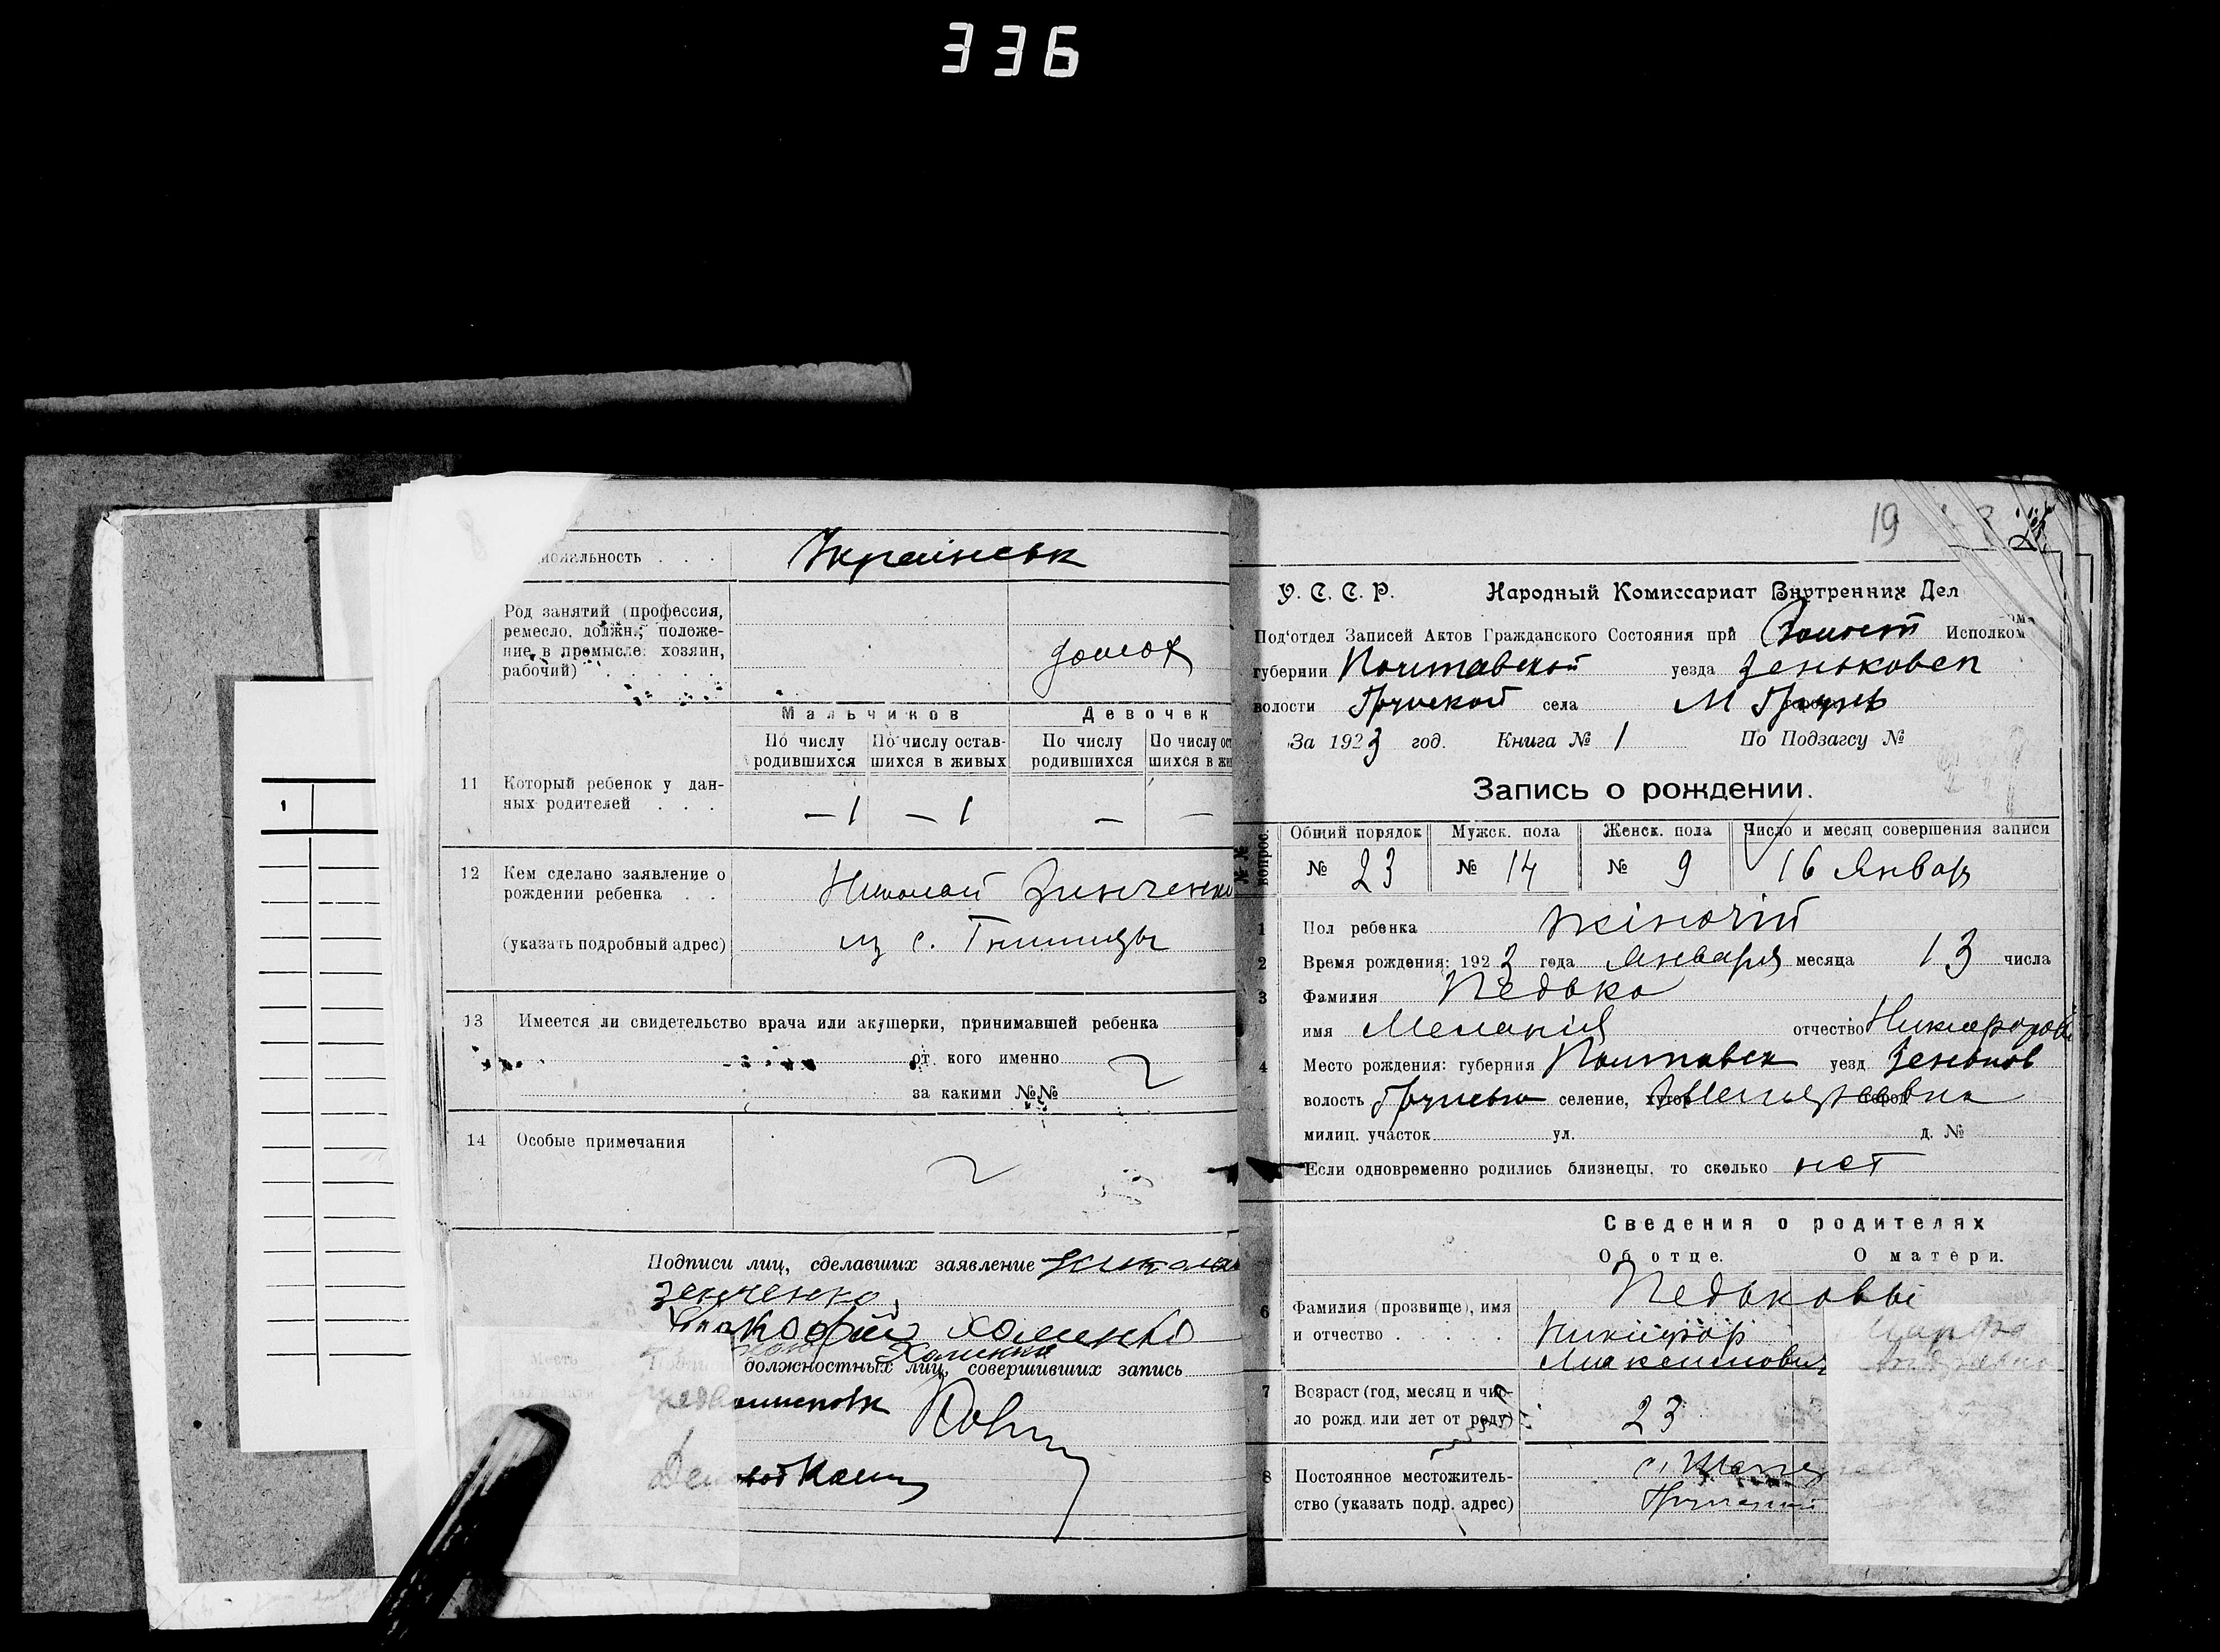 336
Украінськ
Род занятий (профессия,
ремесло, должн., положе-
ние в промысле: хозяин,
рабочий) . . . . .
домох
Мальчиков Девочек
По числу родившихся По числу остав-шихся в живых По числу родившихся По числу
11 Который ребенок у дан-
ных родителей . . .
— 1 — 1 — —
12 Кем сделано заявление о
рождении ребенка . .
Николай Зинченко
(указать подробный адрес)
из с.
13 Имеется ли свидетельство врача или акушерки, принимавшей ребенка
от кого именно
за какими №№
14 Особые примечания
Подписи лиц, сделавших заявление
зенченко
хоменко
Хоменко
должностных лиц, совершивших запись
19
У. С. С. Р. Народный Комиссариат Внутренних Дел
Под'отдел Записей Актов Гражданского Состояния при Волост Исполком
губернии Полтавской уезда Зеньковск
волости Грунской села М Грунь
За 1923 год. Книга № 1 По Подзагсу №
Запись о рождении.
№№ вопрос. Общий порядок Мужск. пола Женск. пола Число и месяц совершения записи
№ 23 № 14 № 9 16 Январ
1 Пол ребенка жіночій
2 Время рождения: 1923 года Января месяца 13 числа
3 Фамилия Педько
имя Меланія отчество Никифоров
4 Место рождения: губерния Полтавск уезд Зеньков
волость селение, хутор
милиц. участок ул. д. №
Если одновременно родились близнецы, то сколько нет
Сведения о родителях
Об отце. О матери.
6 Фамилия (прозвище), имя
и отчество . . . .
Педьковы
Никифор
Максимович
Марфа
7 Возраст (год, месяц и чис-
ло рожд. или лет от роду)
23
8 Постоянное местожитель-
ство (указать подр. адрес)